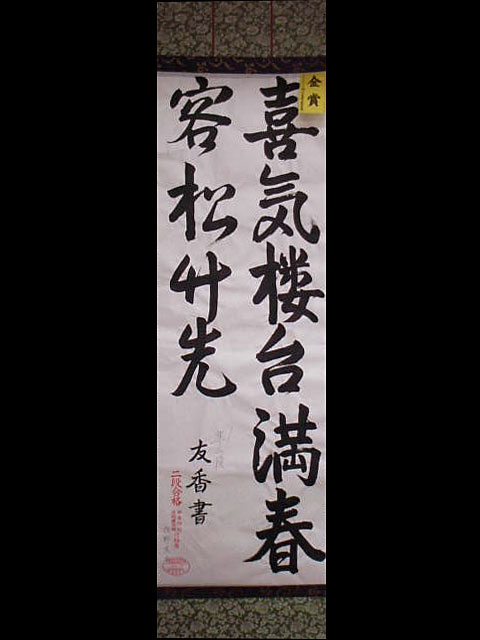 喜気楼台満春
容松竹先
友香書
金賞
準二段
二段合格